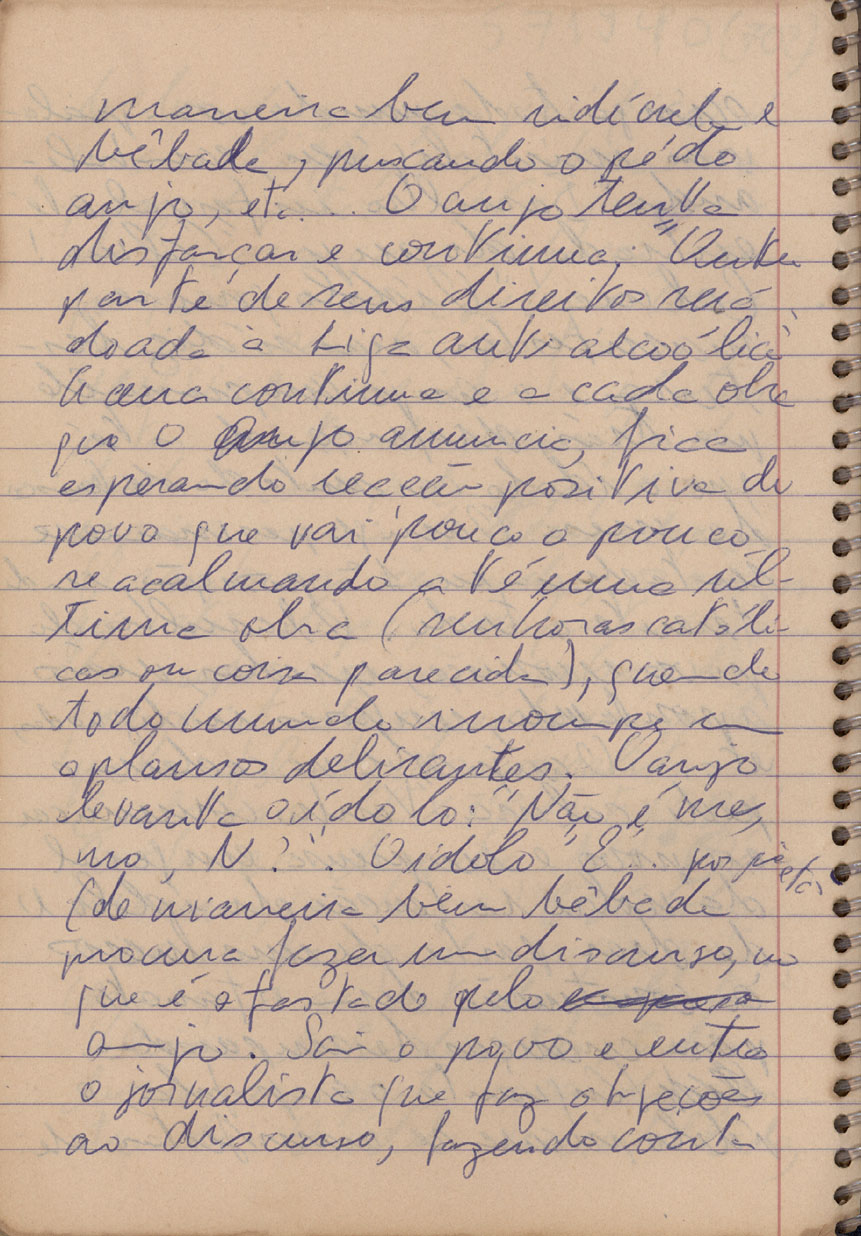 maneira bem ridícula e
bêbada, puxando o pé do
anjo, etc... O anjo tenta
disfarçar e continua: "Outra
parte de seus direitos será
doada à Liga anti alcoólica"
A cena continua e a cada obra
que o anjo anuncia, fica
esperando reação positiva do
povo que vai pouco a pouco
reacalmando até uma úl-
tima obra (senhoras católi-
cas ou coisa parecida), quando
todo mundo irrompe em
aplausos delirantes. O anjo
levanta o ídolo: "Não é mes-
mo, N?". O ídolo "É".
(de maneira bem bêbada
procura fazer um discurso, no
que é afastado pelo
anjo. Sai o povo e entra
o jornalista que faz objeções
ao discurso, fazendo conta